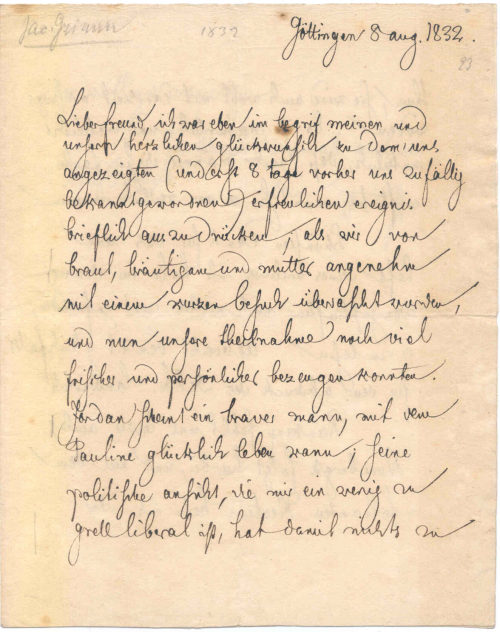 Jac. Grimm 1832
Göttingen 8 aug. 1832.
93
Lieber freund, ich war eben im begrif meinen und
unsern herzlichen glückwunsch zu dem uns
angezeigten (und erst 8 tage vorher uns zufällig
bekannt gewordnen) erfreulichen ereignis
brieflich auszudrücken, als wir von
braut, bräutigam und mutter angenehm
mit einem kurzen besuch überrascht wurden,
und nun unsere theilnahme noch viel
frischer und persönlicher bezeugen konnten.
Jordan scheint ein braver mann, mit dem
Pauline glücklich leben kann; seine
politische ansicht, die mir ein wenig zu
grell liberal ist, hat damit nichts zu